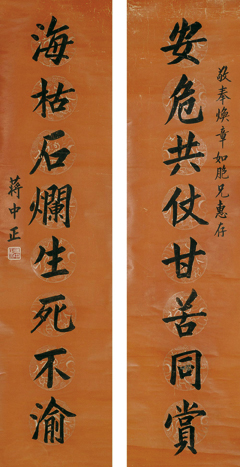 敬奉煥章如胞兄惠存
安危共仗甘苦同賞
海枯石爛生死不渝
蔣中正